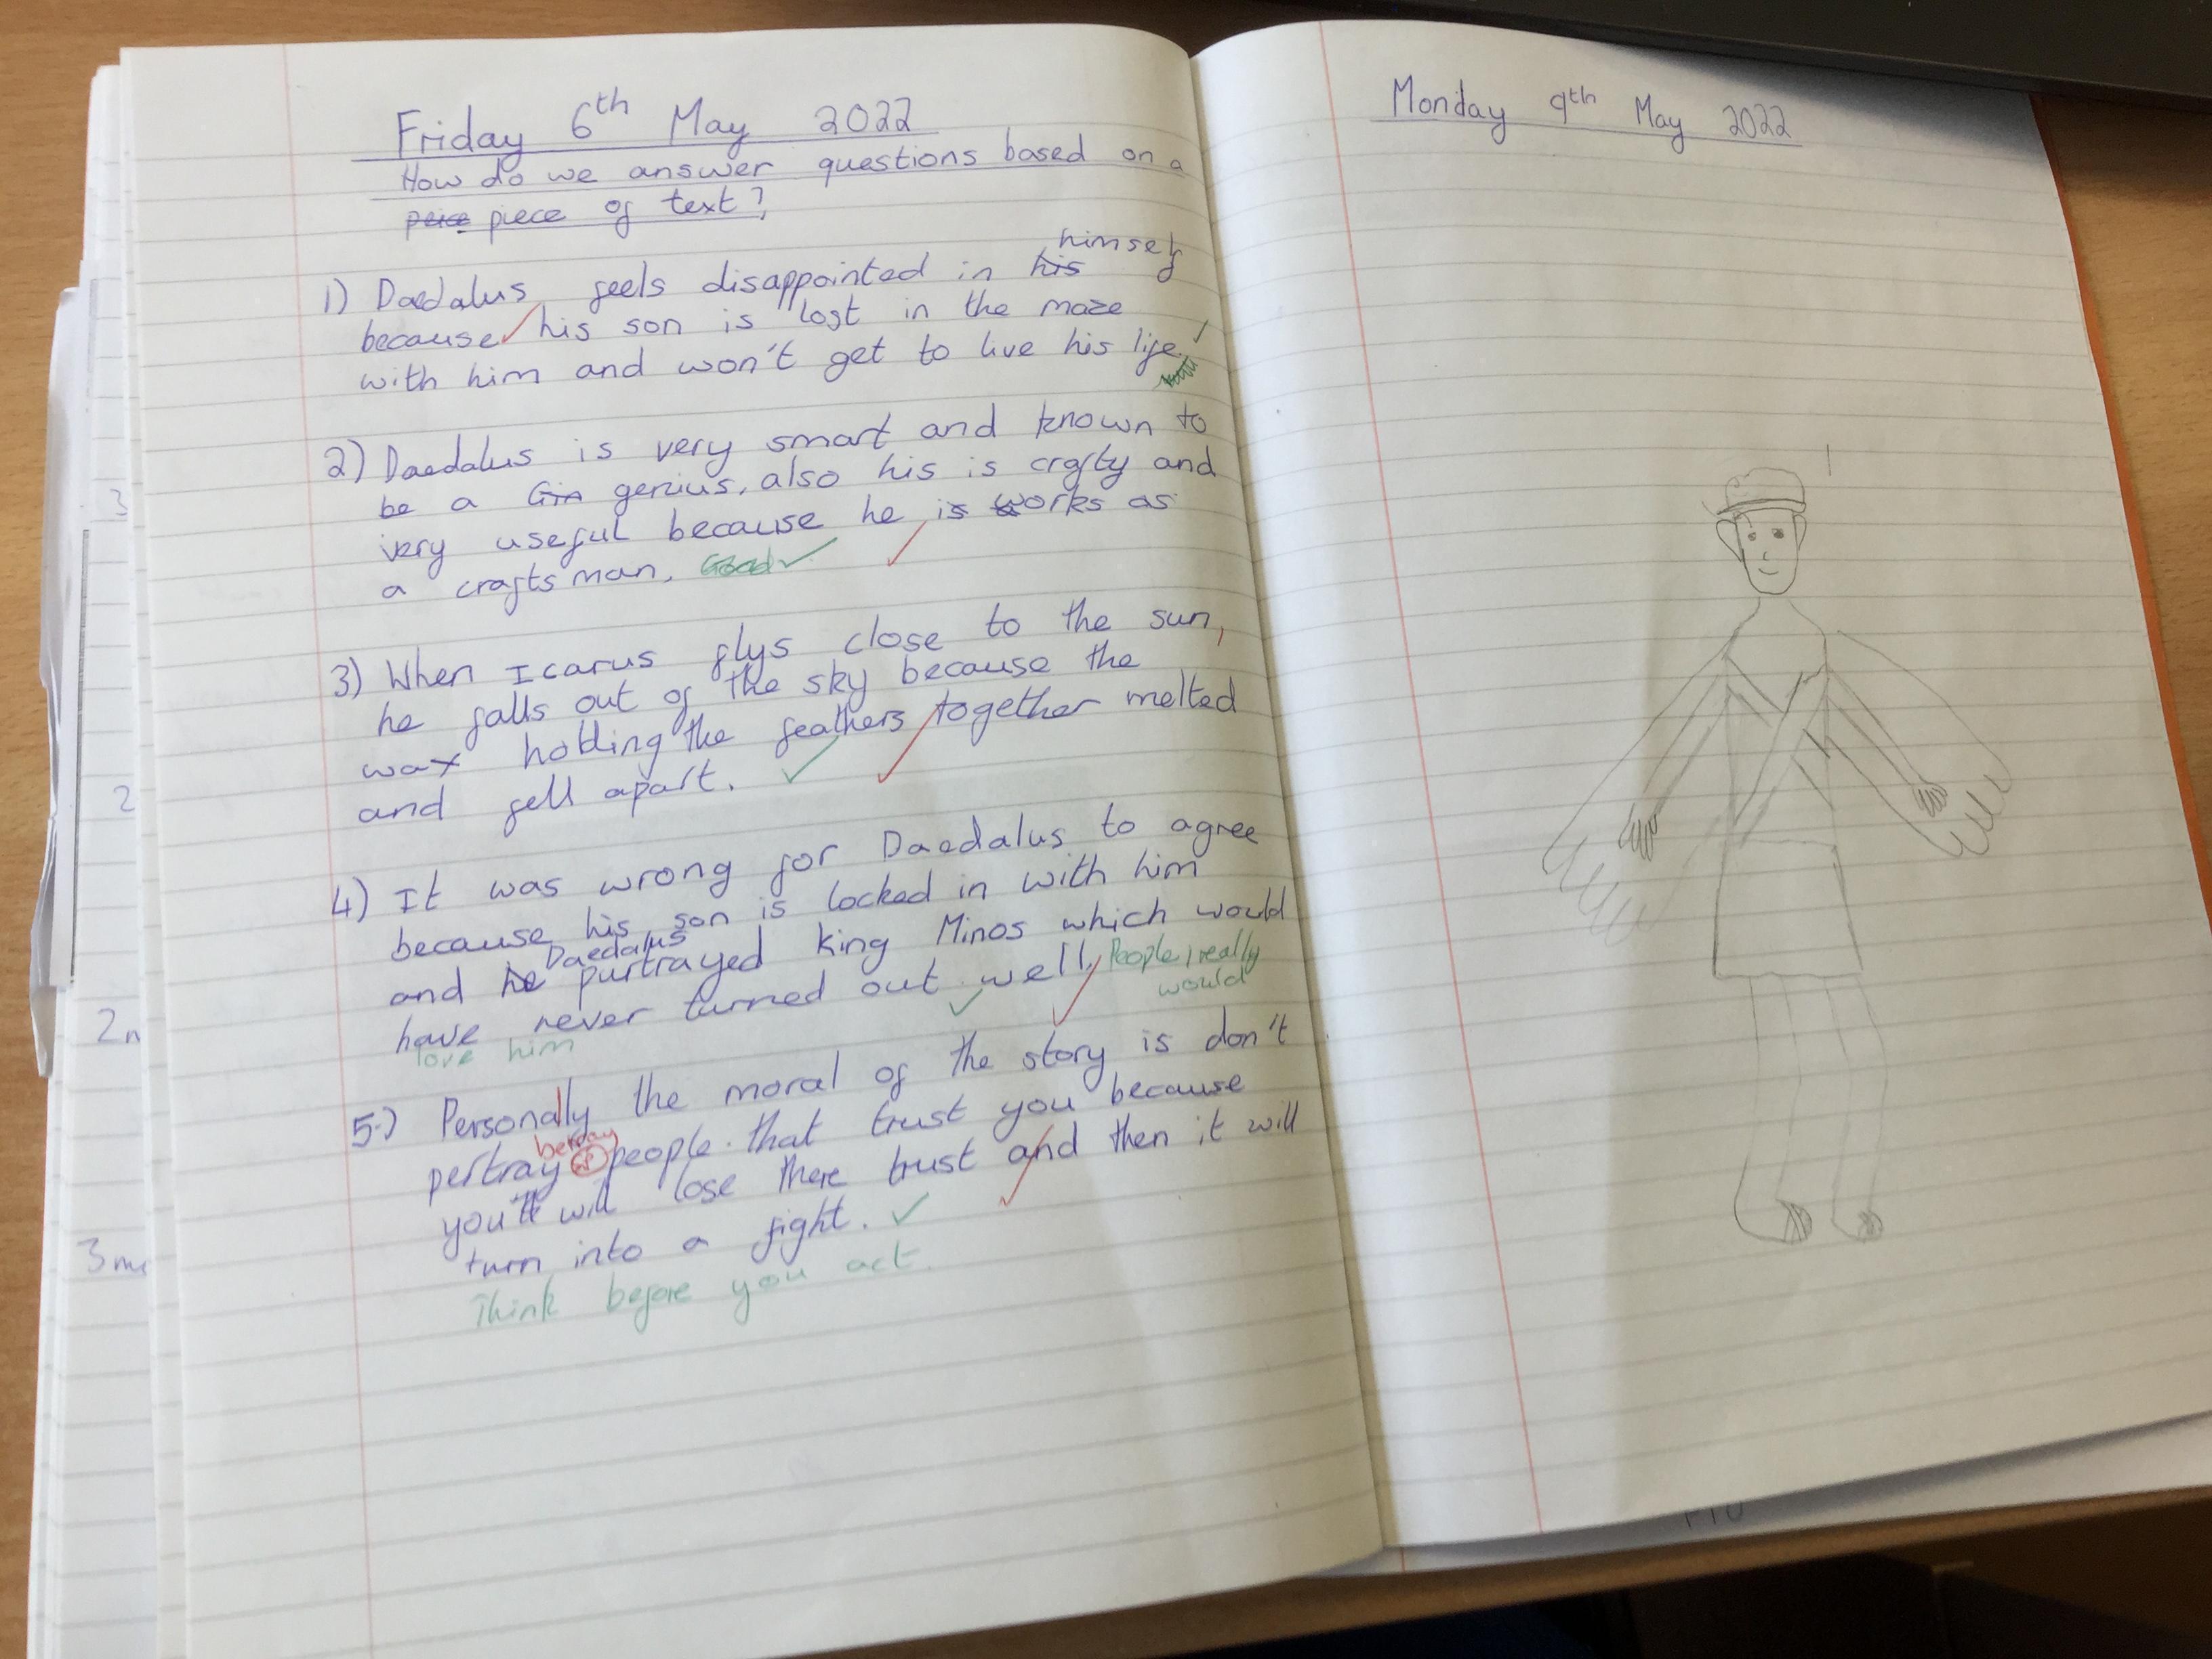 Friday 6th May 2022
How do we answer questions based on a
peice piece of text?
himself
1) Daedalus feels disappointed in his
because his son is lost in the maze
with him and won't get to live his life.
2) Daedalus is very smart and known to
be a Gin genius, also his is crafty and
very useful because he is works as
a craftsman. Good
3) When Icarus flys close to the sun,
he falls out of the sky because the
wax holding the feathers together melted
and fell apart.
4) It was wrong for Daedalus to agree
because his son is locked in with him
Daedalus
and he purtrayed King Minos which would
have never turned out well. People really
would
love him
5.) Personally the moral of the story is don't
betray
pertray sp people that trust you because
you'll will lose there trust and then it will
turn into a fight.
Think before you act.
Monday 9th May 2022
3
2
2n
3m